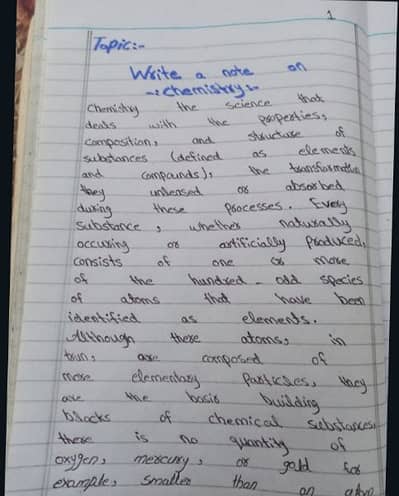 1
Topic:-
Write a note on
-: chemistry:-
Chemistry the science that
deals with the properties,
composition, and structure of
substances (defined as elements
and compounds), the transformation
they untensed or absorbed
during these processes. Every
substance, whether naturally
occuring or artificially produced,
consists of one or more
of the hundred-odd species
of atoms that have been
identified as elements.
Although these atoms, in
turn, are composed of
more elementary particles, they
are the basis building
blocks of chemical substances,
there is no quantity of
oxygen, mercury, or gold for
example, smaller than an atom